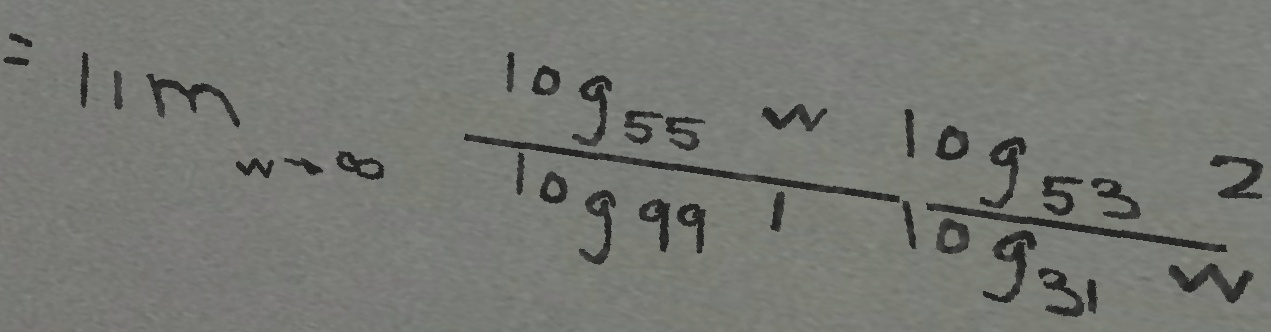 = \lim_{w \to \infty} \frac{\log_{55} w}{\log_{99} 1} \frac{\log_{53} 2}{\log_{31} w}